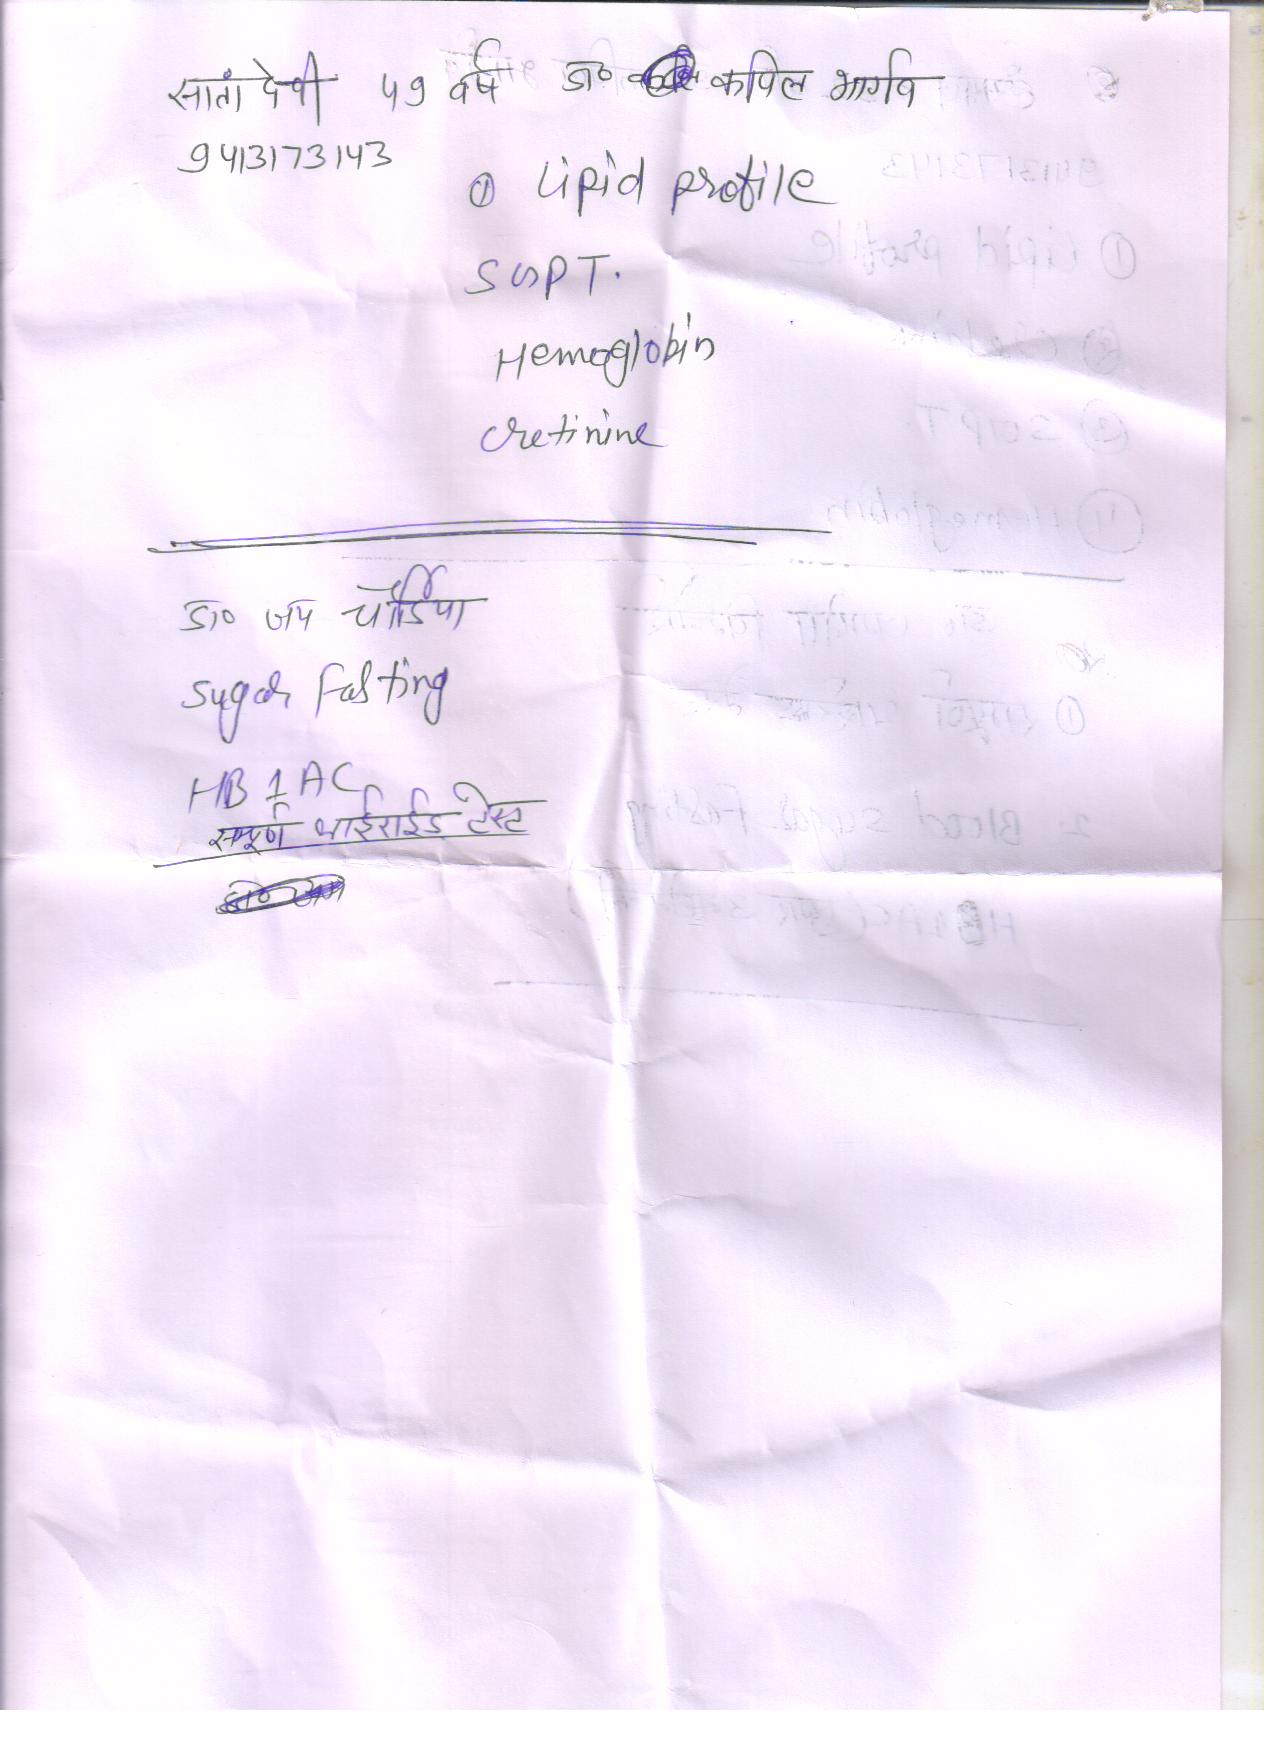 सांतां देवी 59 वर्ष डा० कपिल भार्गव
9413173143
① Lipid profile
SGPT.
Hemoglobin
Cretinine
डा० जय चौर्डिया
Sugar Fasting
HB 1 AC
सम्पूर्ण थाईराईड टेस्ट